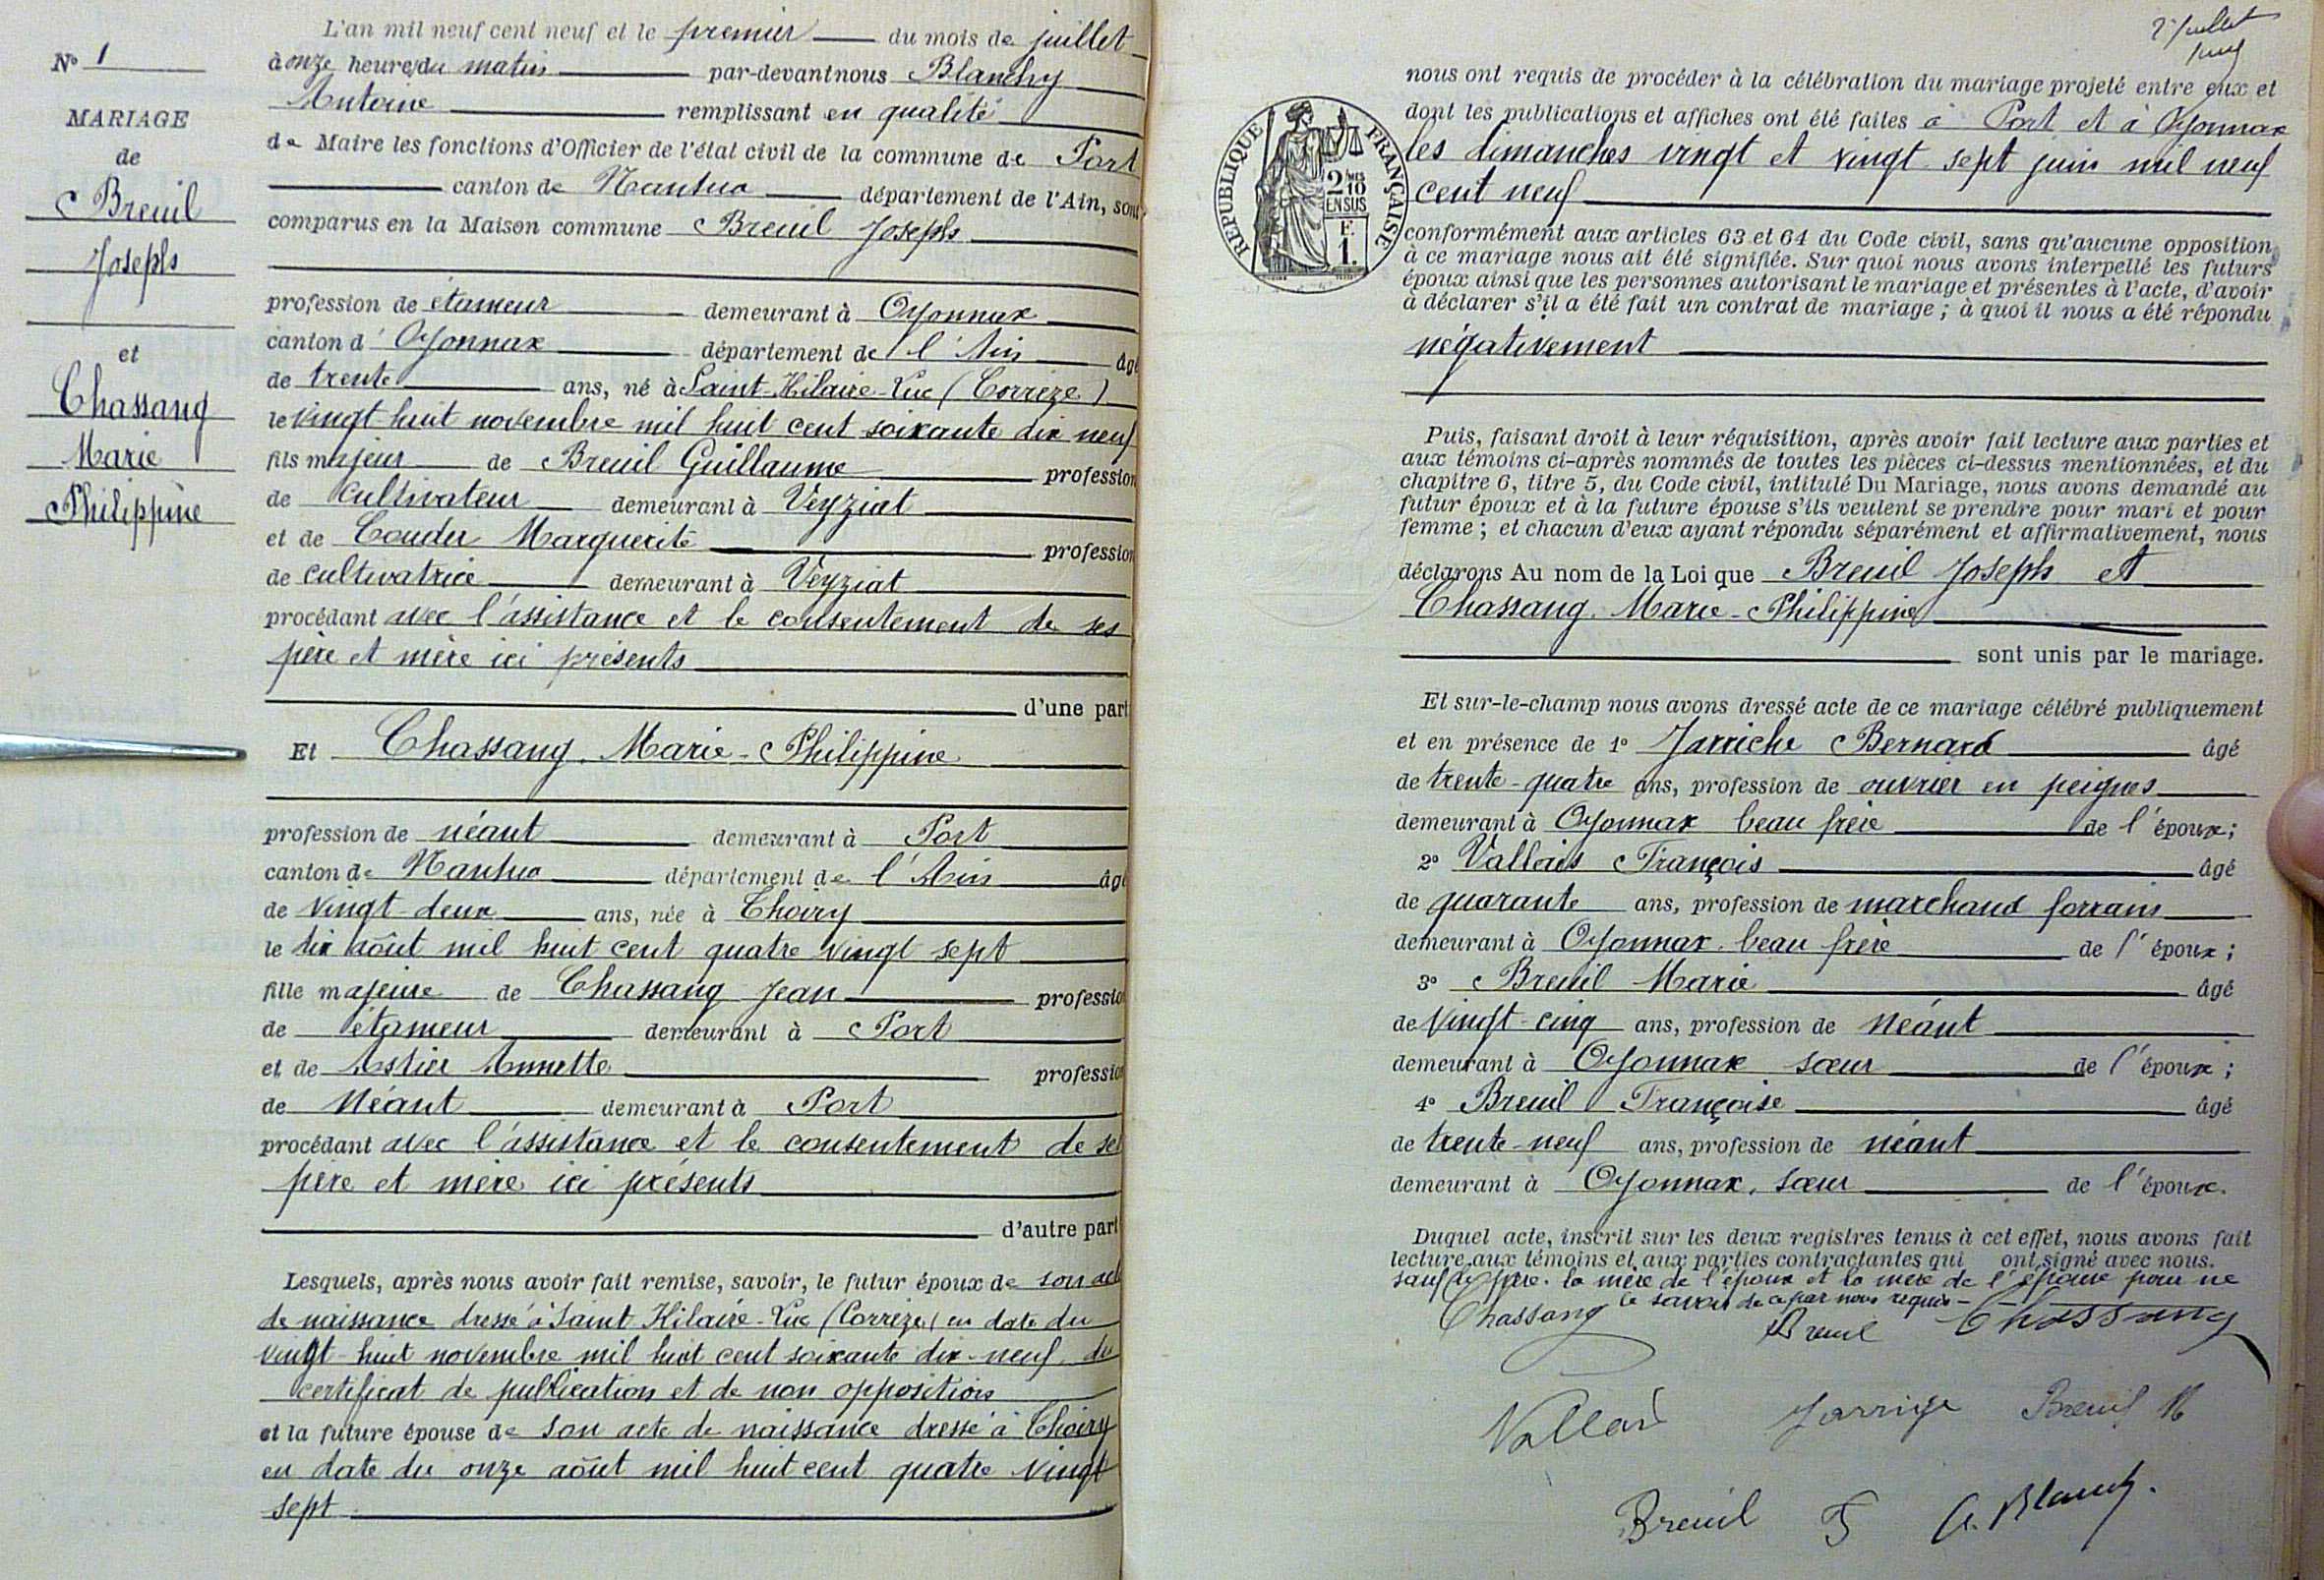 N° 1
MARIAGE
de
Breuil
Joseph
et
Chassang
Marie
Philippine
L'an mil neuf cent neuf et le premier du mois de juillet
à onze heures du matin par-devant nous Blanchy
Antoine remplissant en qualité
de Maire les fonctions d'Officier de l'état civil de la commune de Port
canton de Nantua département de l'Ain, sont
comparus en la Maison commune Breuil Joseph
profession de étameur demeurant à Oyonnax
canton d'Oyonnax département de l'Ain âgé
de trente ans, né à Saint-Hilaire-Luc (Corrèze)
le vingt huit novembre mil huit cent soixante dix neuf
fils majeur de Breuil Guillaume profession
de cultivateur demeurant à Veyziat
et de Couder Marguerite profession
de cultivatrice demeurant à Veyziat
procédant avec l'assistance et le consentement de ses
père et mère ici présents
d'une part
Et Chassang Marie-Philippine
profession de néant demeurant à Port
canton de Nantua département de l'Ain âgé
de vingt-deux ans, née à Thoiry
le dix août mil huit cent quatre vingt sept
fille majeure de Chassang Jean profession
de étameur demeurant à Port
et de Astier Annette profession
de Néant demeurant à Port
procédant avec l'assistance et le consentement de ses
père et mère ici présents
d'autre part
Lesquels, après nous avoir fait remise, savoir, le futur époux de son acte
de naissance dressé à Saint Hilaire-Luc (Corrèze) en date du
vingt-huit novembre mil huit cent soixante dix-neuf, du
certificat de publication et de non opposition
et la future épouse de son acte de naissance dressé à Thoiry
en date du onze août mil huit cent quatre vingt
sept
2 juillet
nous ont requis de procéder à la célébration du mariage projeté entre eux et
dont les publications et affiches ont été faites à Port et à Oyonnax
les dimanches vingt et vingt sept juin mil neuf
cent neuf
RÉPUBLIQUE FRANÇAISE
2/10 MES
EN SUS
F.
1.
conformément aux articles 63 et 64 du Code civil, sans qu'aucune opposition
à ce mariage nous ait été signifiée. Sur quoi nous avons interpellé les futurs
époux ainsi que les personnes autorisant le mariage et présentes à l'acte, d'avoir
à déclarer s'il a été fait un contrat de mariage ; à quoi il nous a été répondu
négativement
Puis, faisant droit à leur réquisition, après avoir fait lecture aux parties et
aux témoins ci-après nommés de toutes les pièces ci-dessus mentionnées, et du
chapitre 6, titre 5, du Code civil, intitulé Du Mariage, nous avons demandé au
futur époux et à la future épouse s'ils veulent se prendre pour mari et pour
femme ; et chacun d'eux ayant répondu séparément et affirmativement, nous
déclarons Au nom de la Loi que Breuil Joseph et
Chassang Marie-Philippine
sont unis par le mariage.
Et sur-le-champ nous avons dressé acte de ce mariage célébré publiquement
et en présence de 1° Jarriche Bernard âgé
de trente-quatre ans, profession de ouvrier en peignes
demeurant à Oyonnax beau frère de l'époux ;
2° Vallais François âgé
de quarante ans, profession de marchand forrain
demeurant à Oyonnax beau frère de l'époux ;
3° Breuil Marie âgé
de vingt-cinq ans, profession de Néant
demeurant à Oyonnax sœur de l'époux ;
4° Breuil Françoise âgé
de trente-neuf ans, profession de néant
demeurant à Oyonnax, sœur de l'époux.
Duquel acte, inscrit sur les deux registres tenus à cet effet, nous avons fait
lecture aux témoins et aux parties contractantes qui ont signé avec nous.
sauf le père, la mère de l'époux et la mère de l'épouse pour ne
le savoir de ce par nous requis-
Chassang Breuil Chassang
Vallais Jarrige Breuil M
Breuil F A. Blanchy.